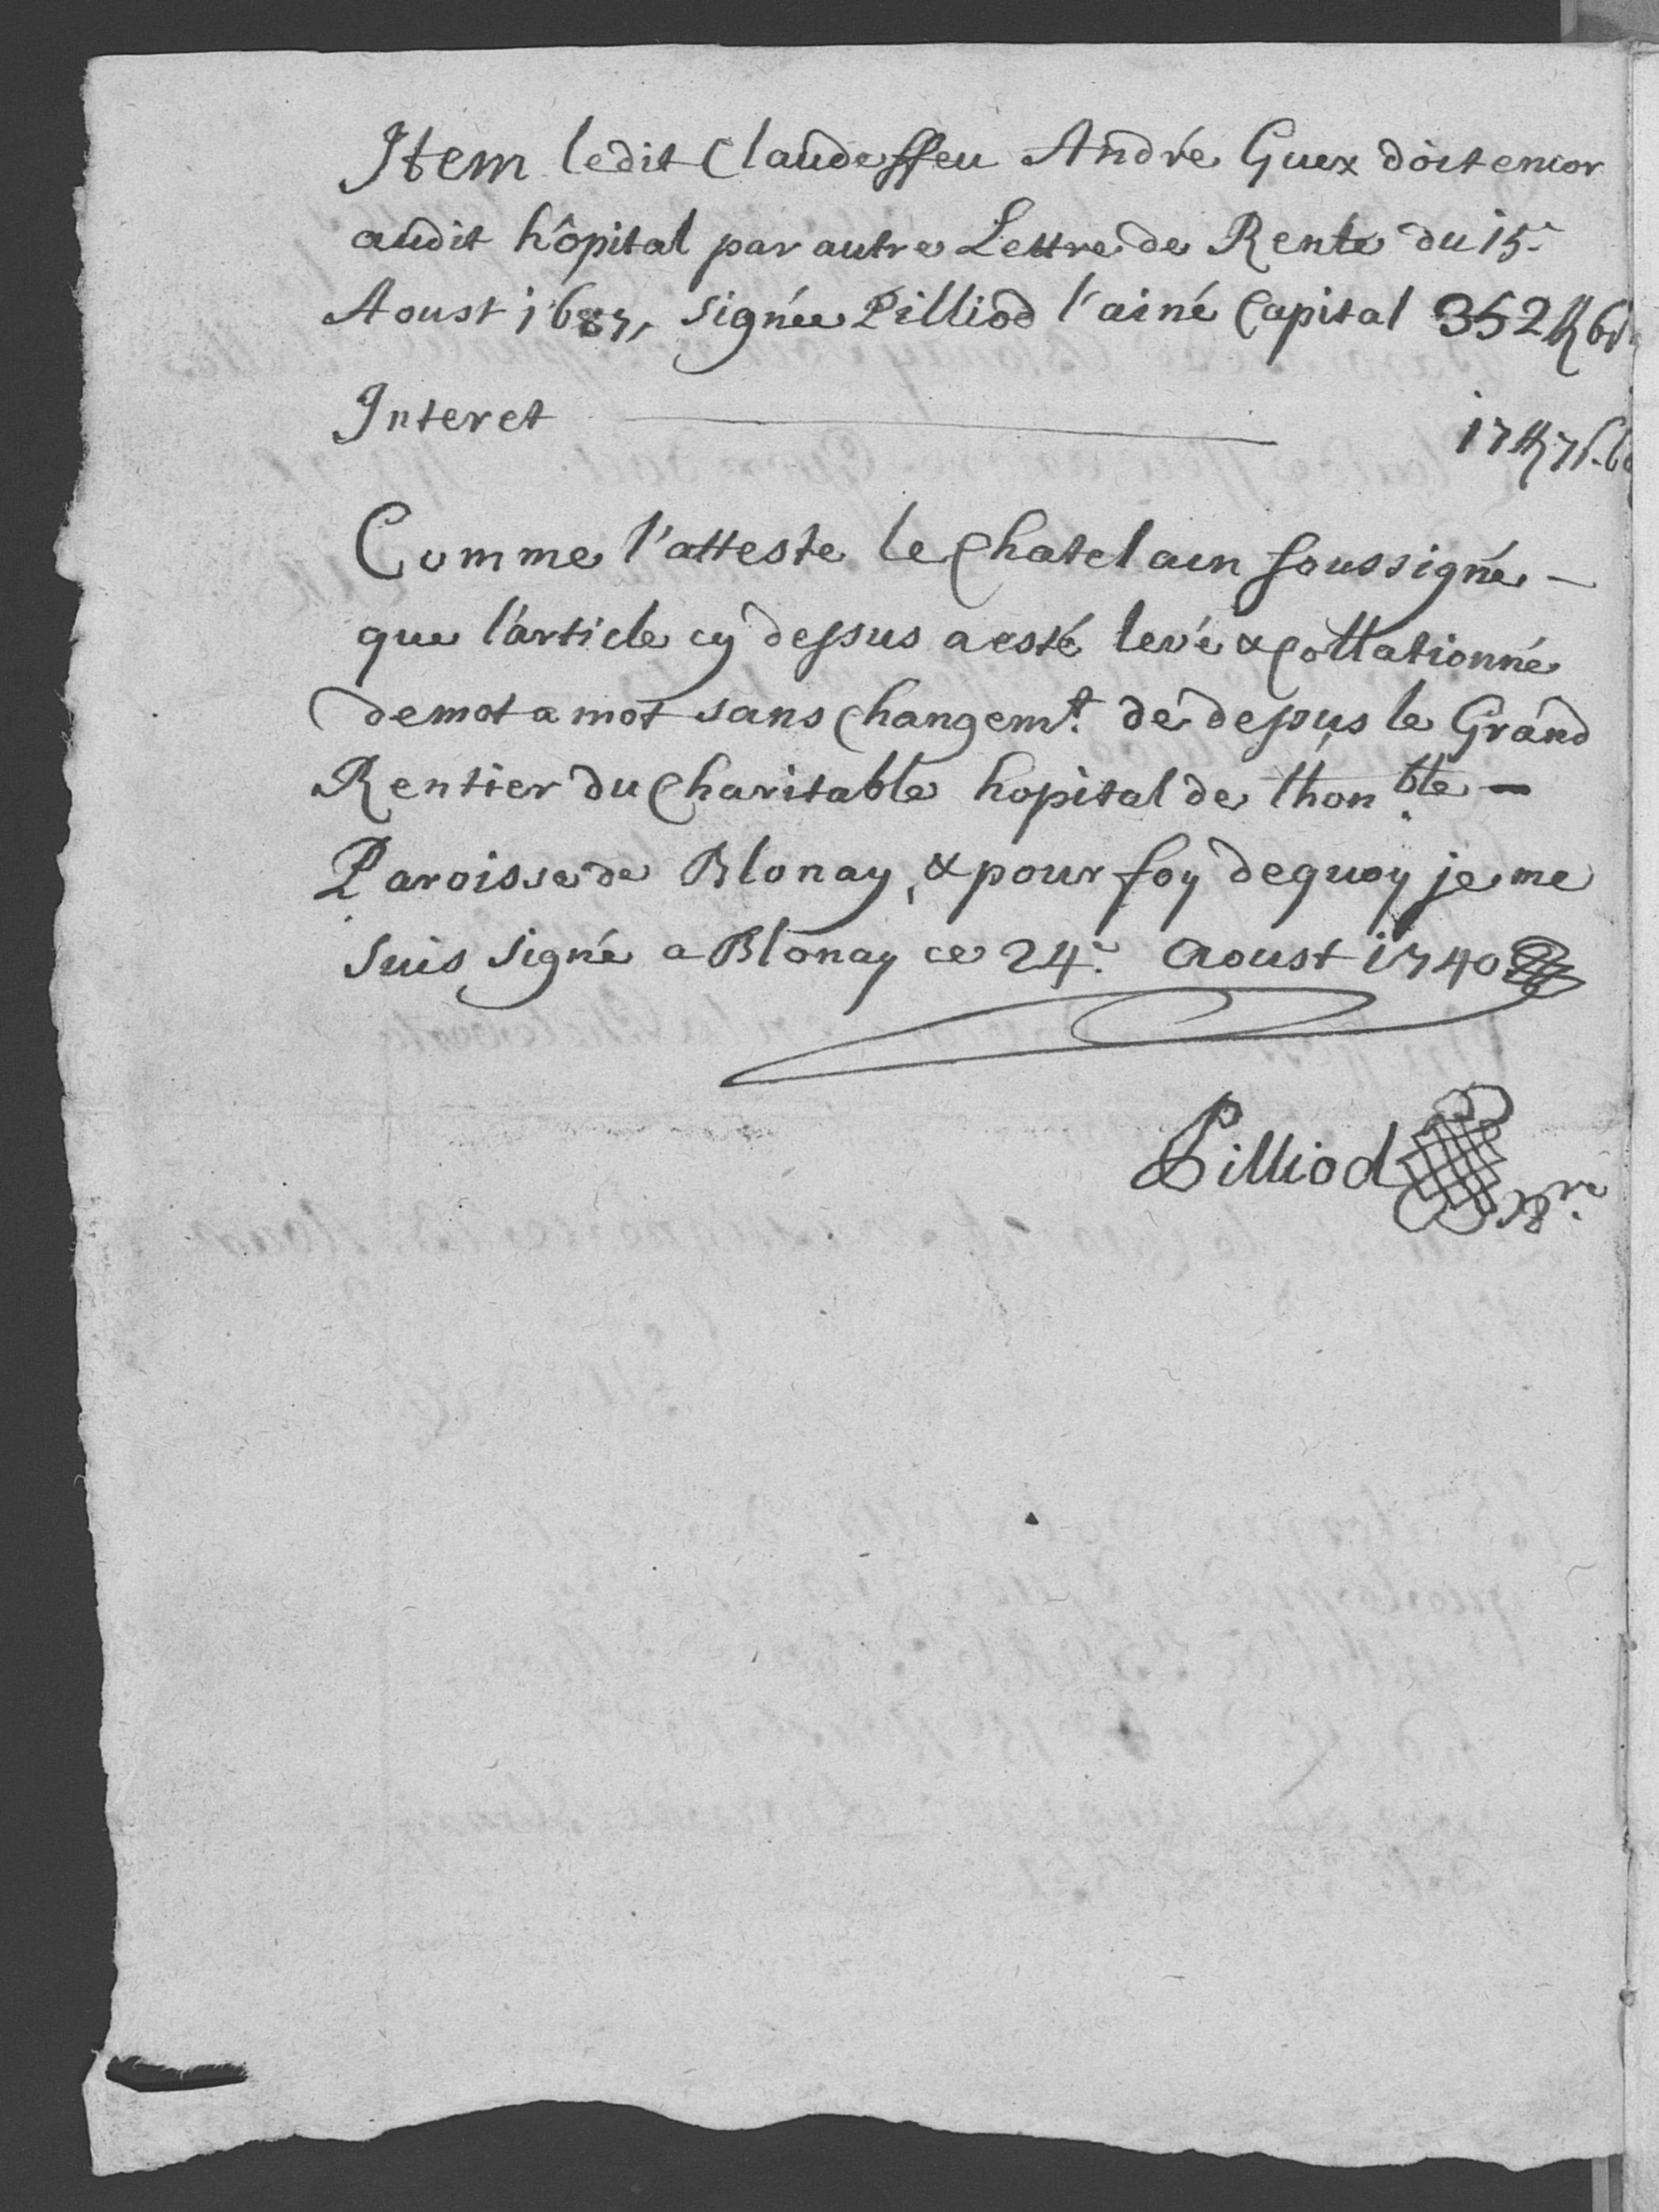 Item ledit Claude ffeu André Guex doit encor
audit hôpital par autre Lettre de Rente du 15.e
Aoust 1687, signée Pilliod l'ainé Capital 352 ff 6
Interet 17 ff 7 s.
Comme l'atteste le Chatelain soussigné -
que l'article cy dessus a esté levé & Collationné
de mot a mot sans changemt. de dessus le Grand
Rentier du Charitable hopital de lhonble -
Paroisse de Blonay, & pour foy dequoy je me
suis signé a Blonay ce 24.e Aoust 1740
Pilliod